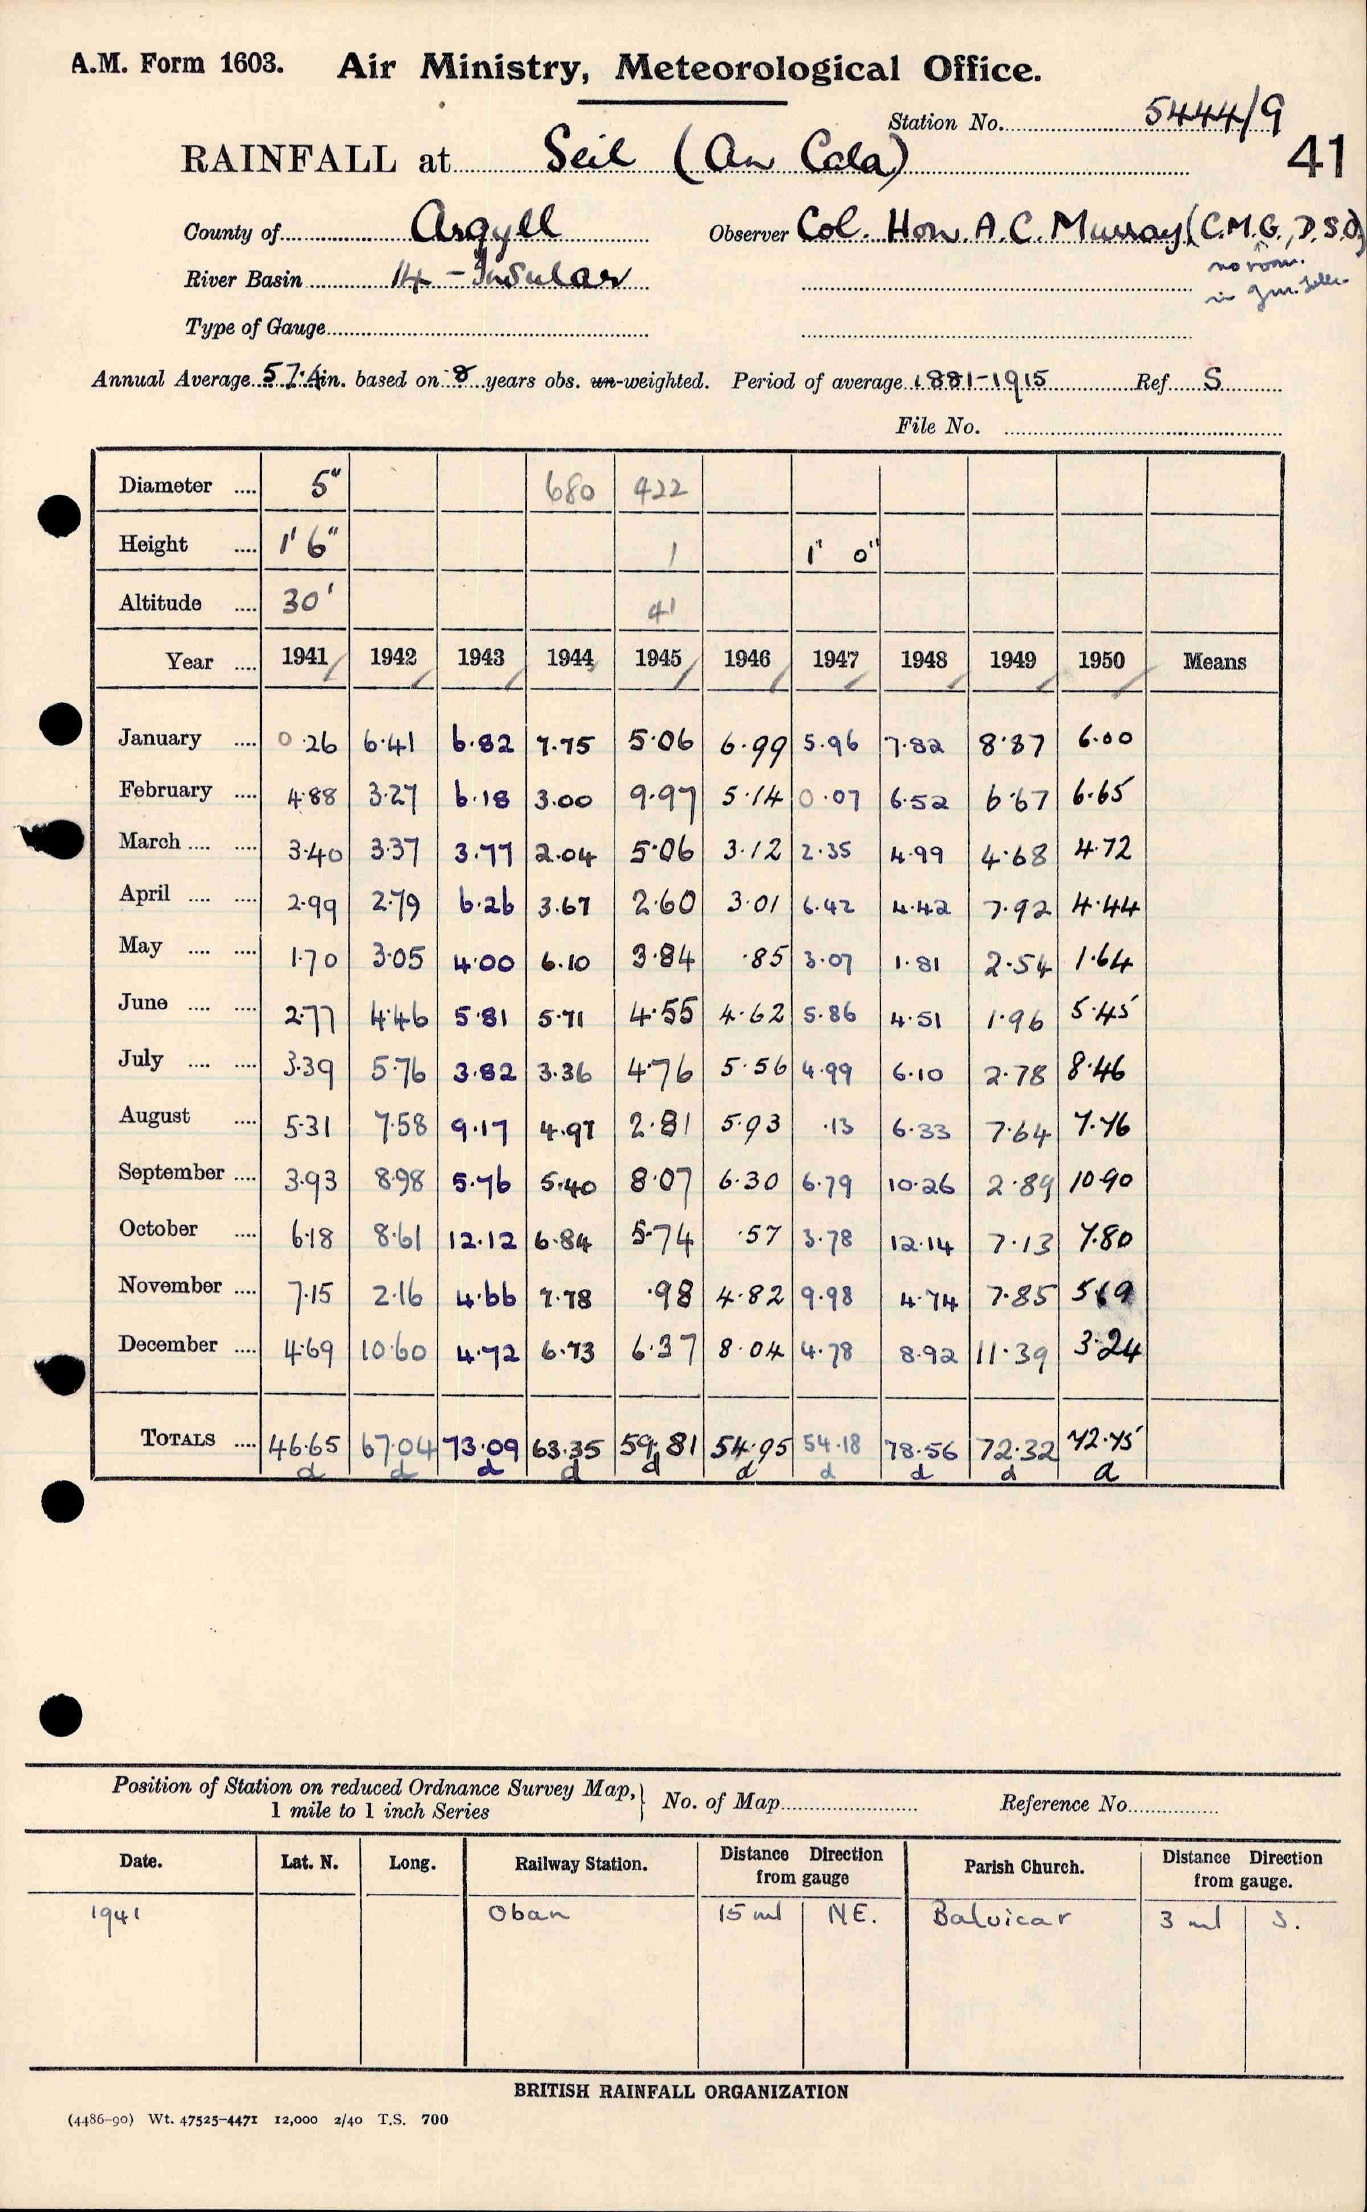 A.M. Form 1603. Air Ministry, Meteorological Office.
Station No. 5444/9
41
RAINFALL at Seil (An Cala)
County of Argyll Observer Col. Hon. A.C. Murray (C.M.G., D.S.O.)
no room
in
River Basin 14 - Insular
Type of Gauge
Annual Average 57.4 in. based on 8 years obs. un-weighted. Period of average 1881-1915 Ref S
File No.
Diameter .... 5" 680 422
Height .... 1' 6" 1 1' 0"
Altitude .... 30' 41
Year .... 1941 1942 1943 1944 1945 1946 1947 1948 1949 1950 Means
January .... 0.26 6.41 6.82 7.75 5.06 6.99 5.96 7.82 8.87 6.00
February .... 4.88 3.27 6.18 3.00 9.97 5.14 0.07 6.52 6.67 6.65
March .... .... 3.40 3.37 3.77 2.04 5.06 3.12 2.35 4.99 4.68 4.72
April .... .... 2.99 2.79 6.26 3.67 2.60 3.01 6.42 4.42 7.92 4.44
May .... .... 1.70 3.05 4.00 6.10 3.84 .85 3.07 1.81 2.54 1.64
June .... .... 2.77 4.46 5.81 5.71 4.55 4.62 5.86 4.51 1.96 5.45
July .... .... 3.39 5.76 3.82 3.36 4.76 5.56 4.99 6.10 2.78 8.46
August .... 5.31 7.58 9.17 4.97 2.81 5.93 .13 6.33 7.64 7.76
September .... 3.93 8.98 5.76 5.40 8.07 6.30 6.79 10.26 2.89 10.90
October .... 6.18 8.61 12.12 6.84 5.74 .57 3.78 12.14 7.13 7.80
November .... 7.15 2.16 4.66 7.78 .98 4.82 9.98 4.74 7.85 5.69
December .... 4.69 10.60 4.72 6.73 6.37 8.04 4.78 8.92 11.39 3.24
TOTALS .... 46.65 67.04 73.09 63.35 59.81 54.95 54.18 78.56 72.32 72.75
d d d d d d d d d d
Position of Station on reduced Ordnance Survey Map,
1 mile to 1 inch Series
No. of Map Reference No.
Date. Lat. N. Long. Railway Station. Distance Direction from gauge Parish Church. Distance Direction from gauge.
1941 Oban 15 ml N.E. Balvicar 3 ml S.
BRITISH RAINFALL ORGANIZATION
(4486-90) Wt. 47525-4471 12,000 2/40 T.S. 700